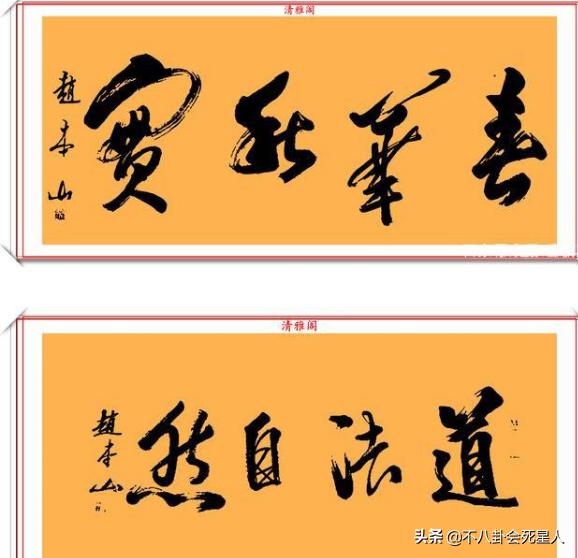 清雅阁
春華秋實
趙本山
清雅阁
道法自然
趙本山
头条 @不八卦会死星人